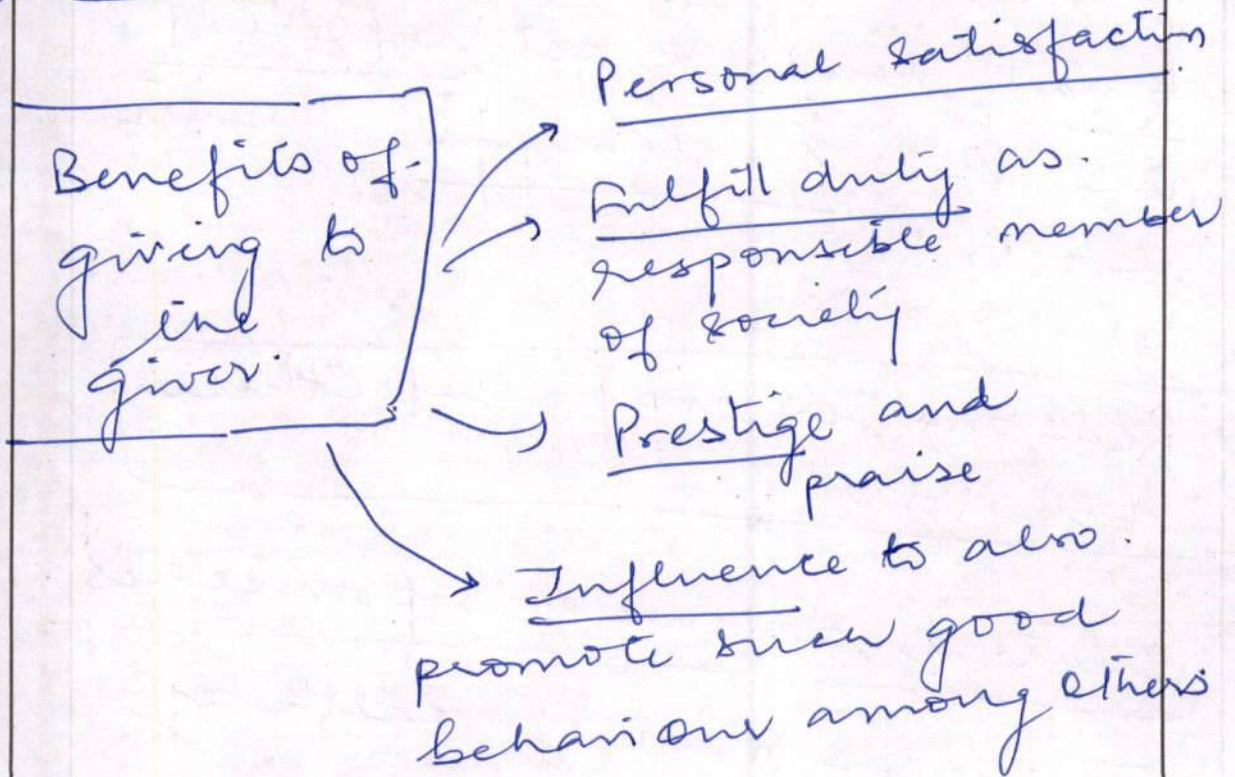 Benefits of
giving to
the
giver
Personal satisfaction
Fulfill duty as
responsible member
of society
Prestige and
praise
Influence to also
promote such good
behaviour among others